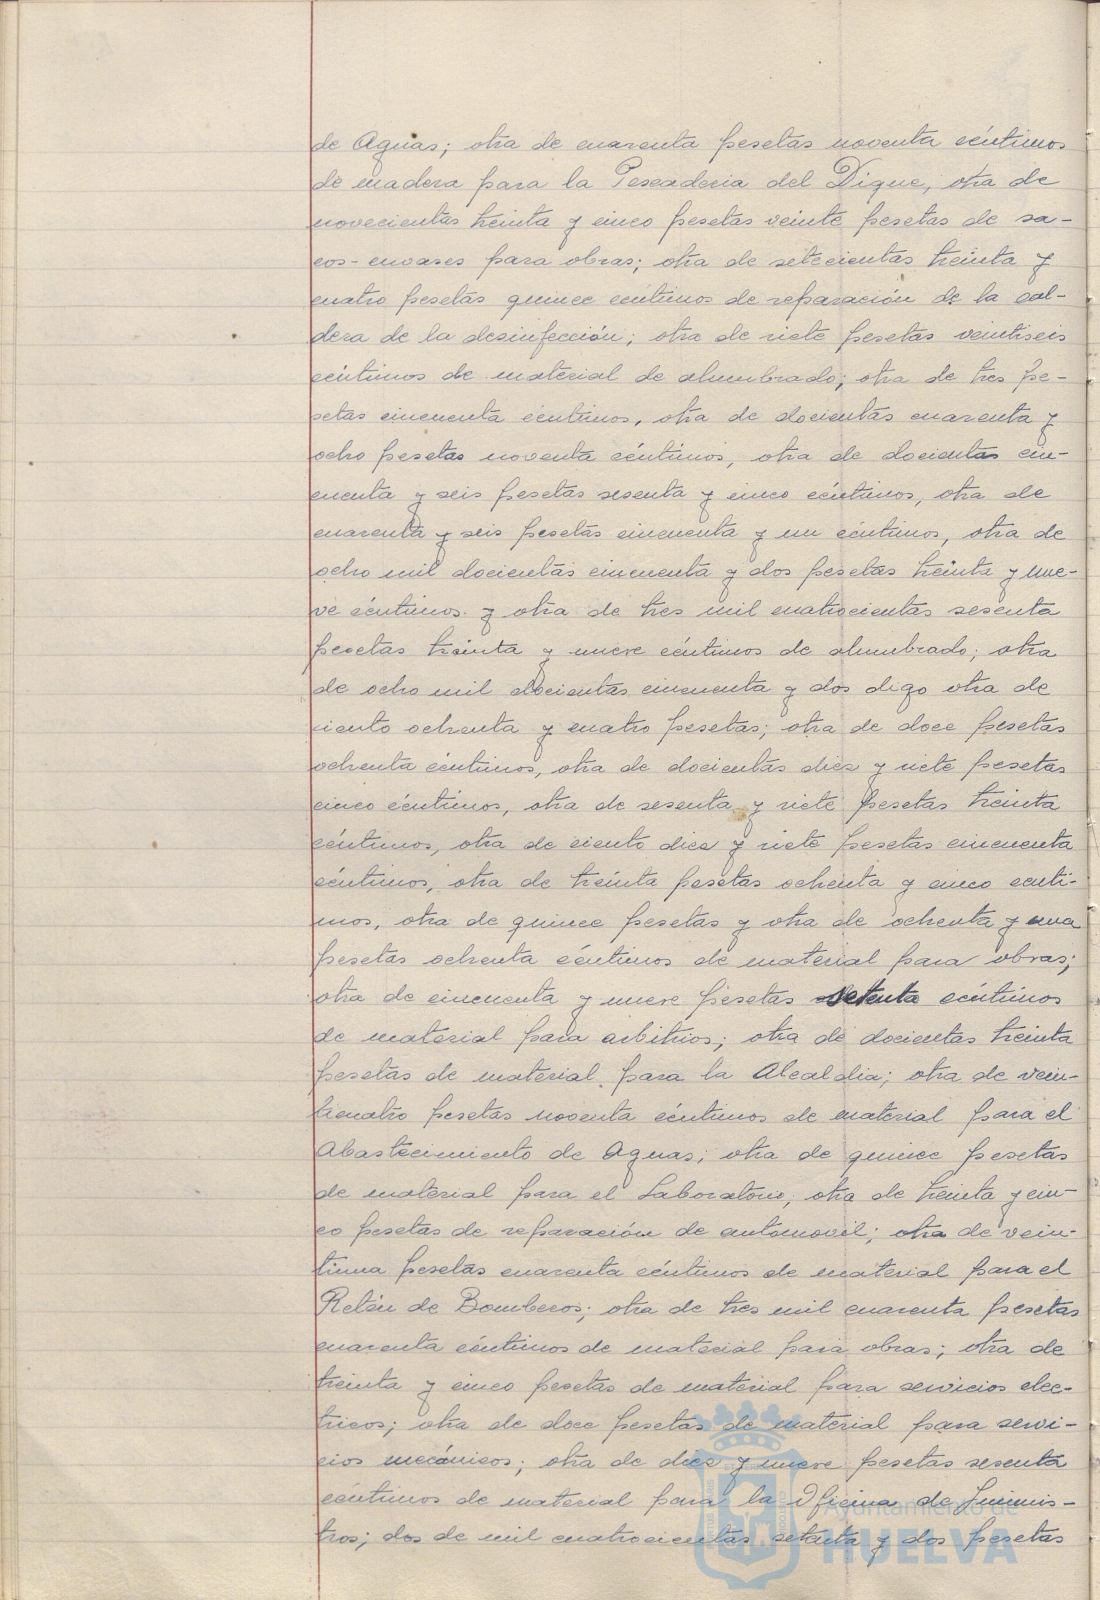 de Aguas; otra de cuarenta pesetas noventa céntimos
de madera para la Pescaderia del Dique, otra de
novecientas treinta y cinco pesetas veinte pesetas de sa-
cos-envases para obras; otra de setecientas treinta y
cuatro pesetas quince céntimos de reparación de la cal-
dera de la desinfección; otra de siete pesetas veintiseis
céntimos de material de alumbrado; otra de tres pe-
setas cincuenta céntimos, otra de docientas cuarenta y
ocho pesetas noventa céntimos, otra de docientas cin-
cuenta y seis pesetas sesenta y cinco céntimos, otra de
cuarenta y seis pesetas cincuenta y un céntimos, otra de
ocho mil docientas cincuenta y dos pesetas treinta y nue-
ve céntimos. y otra de tres mil cuatrocientas sesenta
pesetas treinta y nueve céntimos de alumbrado; otra
de ocho mil docientas cincuenta y dos digo otra de
ciento ochenta y cuatro pesetas; otra de doce pesetas
ochenta céntimos, otra de docientas diez y siete pesetas
cinco céntimos, otra de sesenta y siete pesetas treinta
céntimos, otra de ciento diez y siete pesetas cincuenta
céntimos, otra de treinta pesetas ochenta y cinco centi-
mos, otra de quince pesetas y otra de ochenta y una
pesetas ochenta céntimos de material para obras;
otra de cincuenta y nueve pesetas setenta céntimos
de material para arbitrios; otra de docientas treinta
pesetas de material para la Alcaldia; otra de vein-
ticuatro pesetas noventa céntimos de material para el
Abastecimiento de Aguas; otra de quince pesetas
de material para el Laboratorio; otra de treinta y cin-
co pesetas de reparación de automovil; otra de vein-
tiuna pesetas cuarenta céntimos de material para el
Retén de Bomberos; otra de tres mil cuarenta pesetas
cuarenta céntimos de material para obras; otra de
treinta y cinco pesetas de material para servicios elec-
tricos; otra de doce pesetas de material para servi-
cios mecánicos; otra de diez y nueve pesetas sesenta
céntimos de material para la Oficina de Suminis-
tros; dos de mil cuatrocientas setenta y dos pesetas
Ayuntamiento de
HUELVA